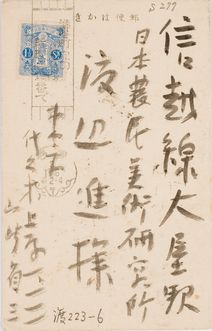 S277
郵便はかき
1½
信越線大屋駅
日本農民美術研究所
渡辺進様
東京
代々木上原一一
山崎省三
渡223-6